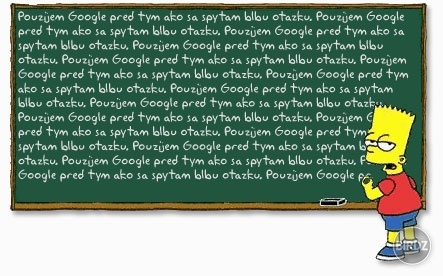 Pouzijem Google pred tym ako sa spytam blbu otazku, Pouzijem Google
pred tym ako sa spytam blbu otazku, Pouzijem Google pred tym ako sa
spytam blbu otazku, Pouzijem Google pred tym ako sa spytam blbu
otazku, Pouzijem Google pred tym ako sa spytam blbu otazku, Pouzijem
Google pred tym ako sa spytam blbu otazku, Pouzijem Google pred tym
ako sa spytam blbu otazku, Pouzijem Google pred tym ako sa spytam
blbu otazku, Pouzijem Google pred tym ako sa spytam blbu otazku,
Pouzijem Google pred tym ako sa spytam blbu otazku, Pouzijem
pred tym ako sa spytam blbu otazku, Pouzijem Google pred tym
spytam blbu otazku, Pouzijem Google pred tym ako sa spytam
otazku, Pouzijem Google pred tym ako sa spytam blbu otazku,
Google pred tym ako sa spytam blbu otazku, Pouzijem Google
BIRDZ